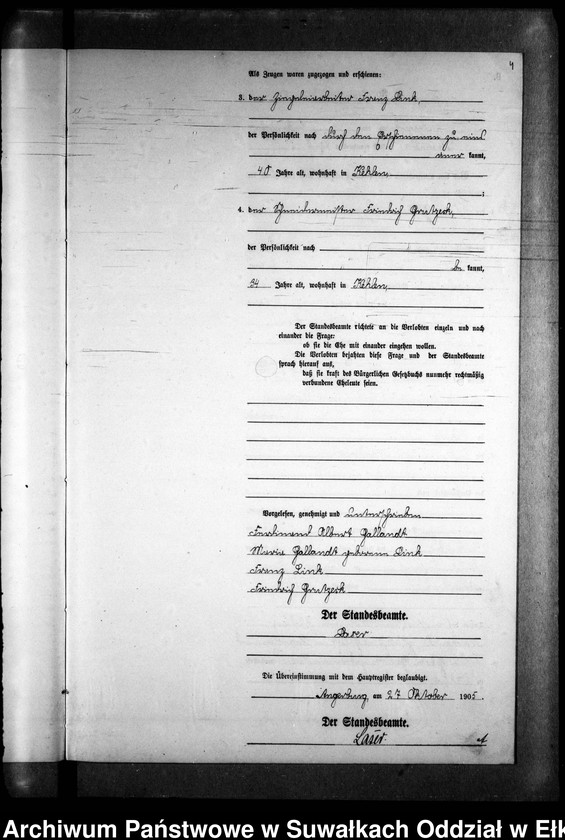 4
Als Zeugen waren zugezogen und erschienen:
3. der Ziegeleiarbeiter Franz Link,
der Persönlichkeit nach durch den
kannt,
40 Jahre alt, wohnhaft in Kehlen
;
4. der Schneidermeister Friedrich Grutzeck,
der Persönlichkeit nach
be kannt,
34 Jahre alt, wohnhaft in Kehlen,
Der Standesbeamte richtete an die Verlobten einzeln und nach
einander die Frage:
ob sie die Ehe mit einander eingehen wollen.
Die Verlobten bejahten diese Frage und der Standesbeamte
sprach hierauf aus,
daß sie kraft des Bürgerlichen Gesetzbuchs nunmehr rechtmäßig
verbundene Eheleute seien.
Vorgelesen, genehmigt und unterschrieben
Ferdinand Albert Gallandt
Marie Gallandt geborene Link
Franz Link
Friedrich Grutzeck
Der Standesbeamte.
Die Übereinstimmung mit dem Hauptregister beglaubigt.
Angerburg, am 27 Oktober 1905.
Der Standesbeamte.
Laser
Archiwum Państwowe w Suwałkach Oddział w Ełk